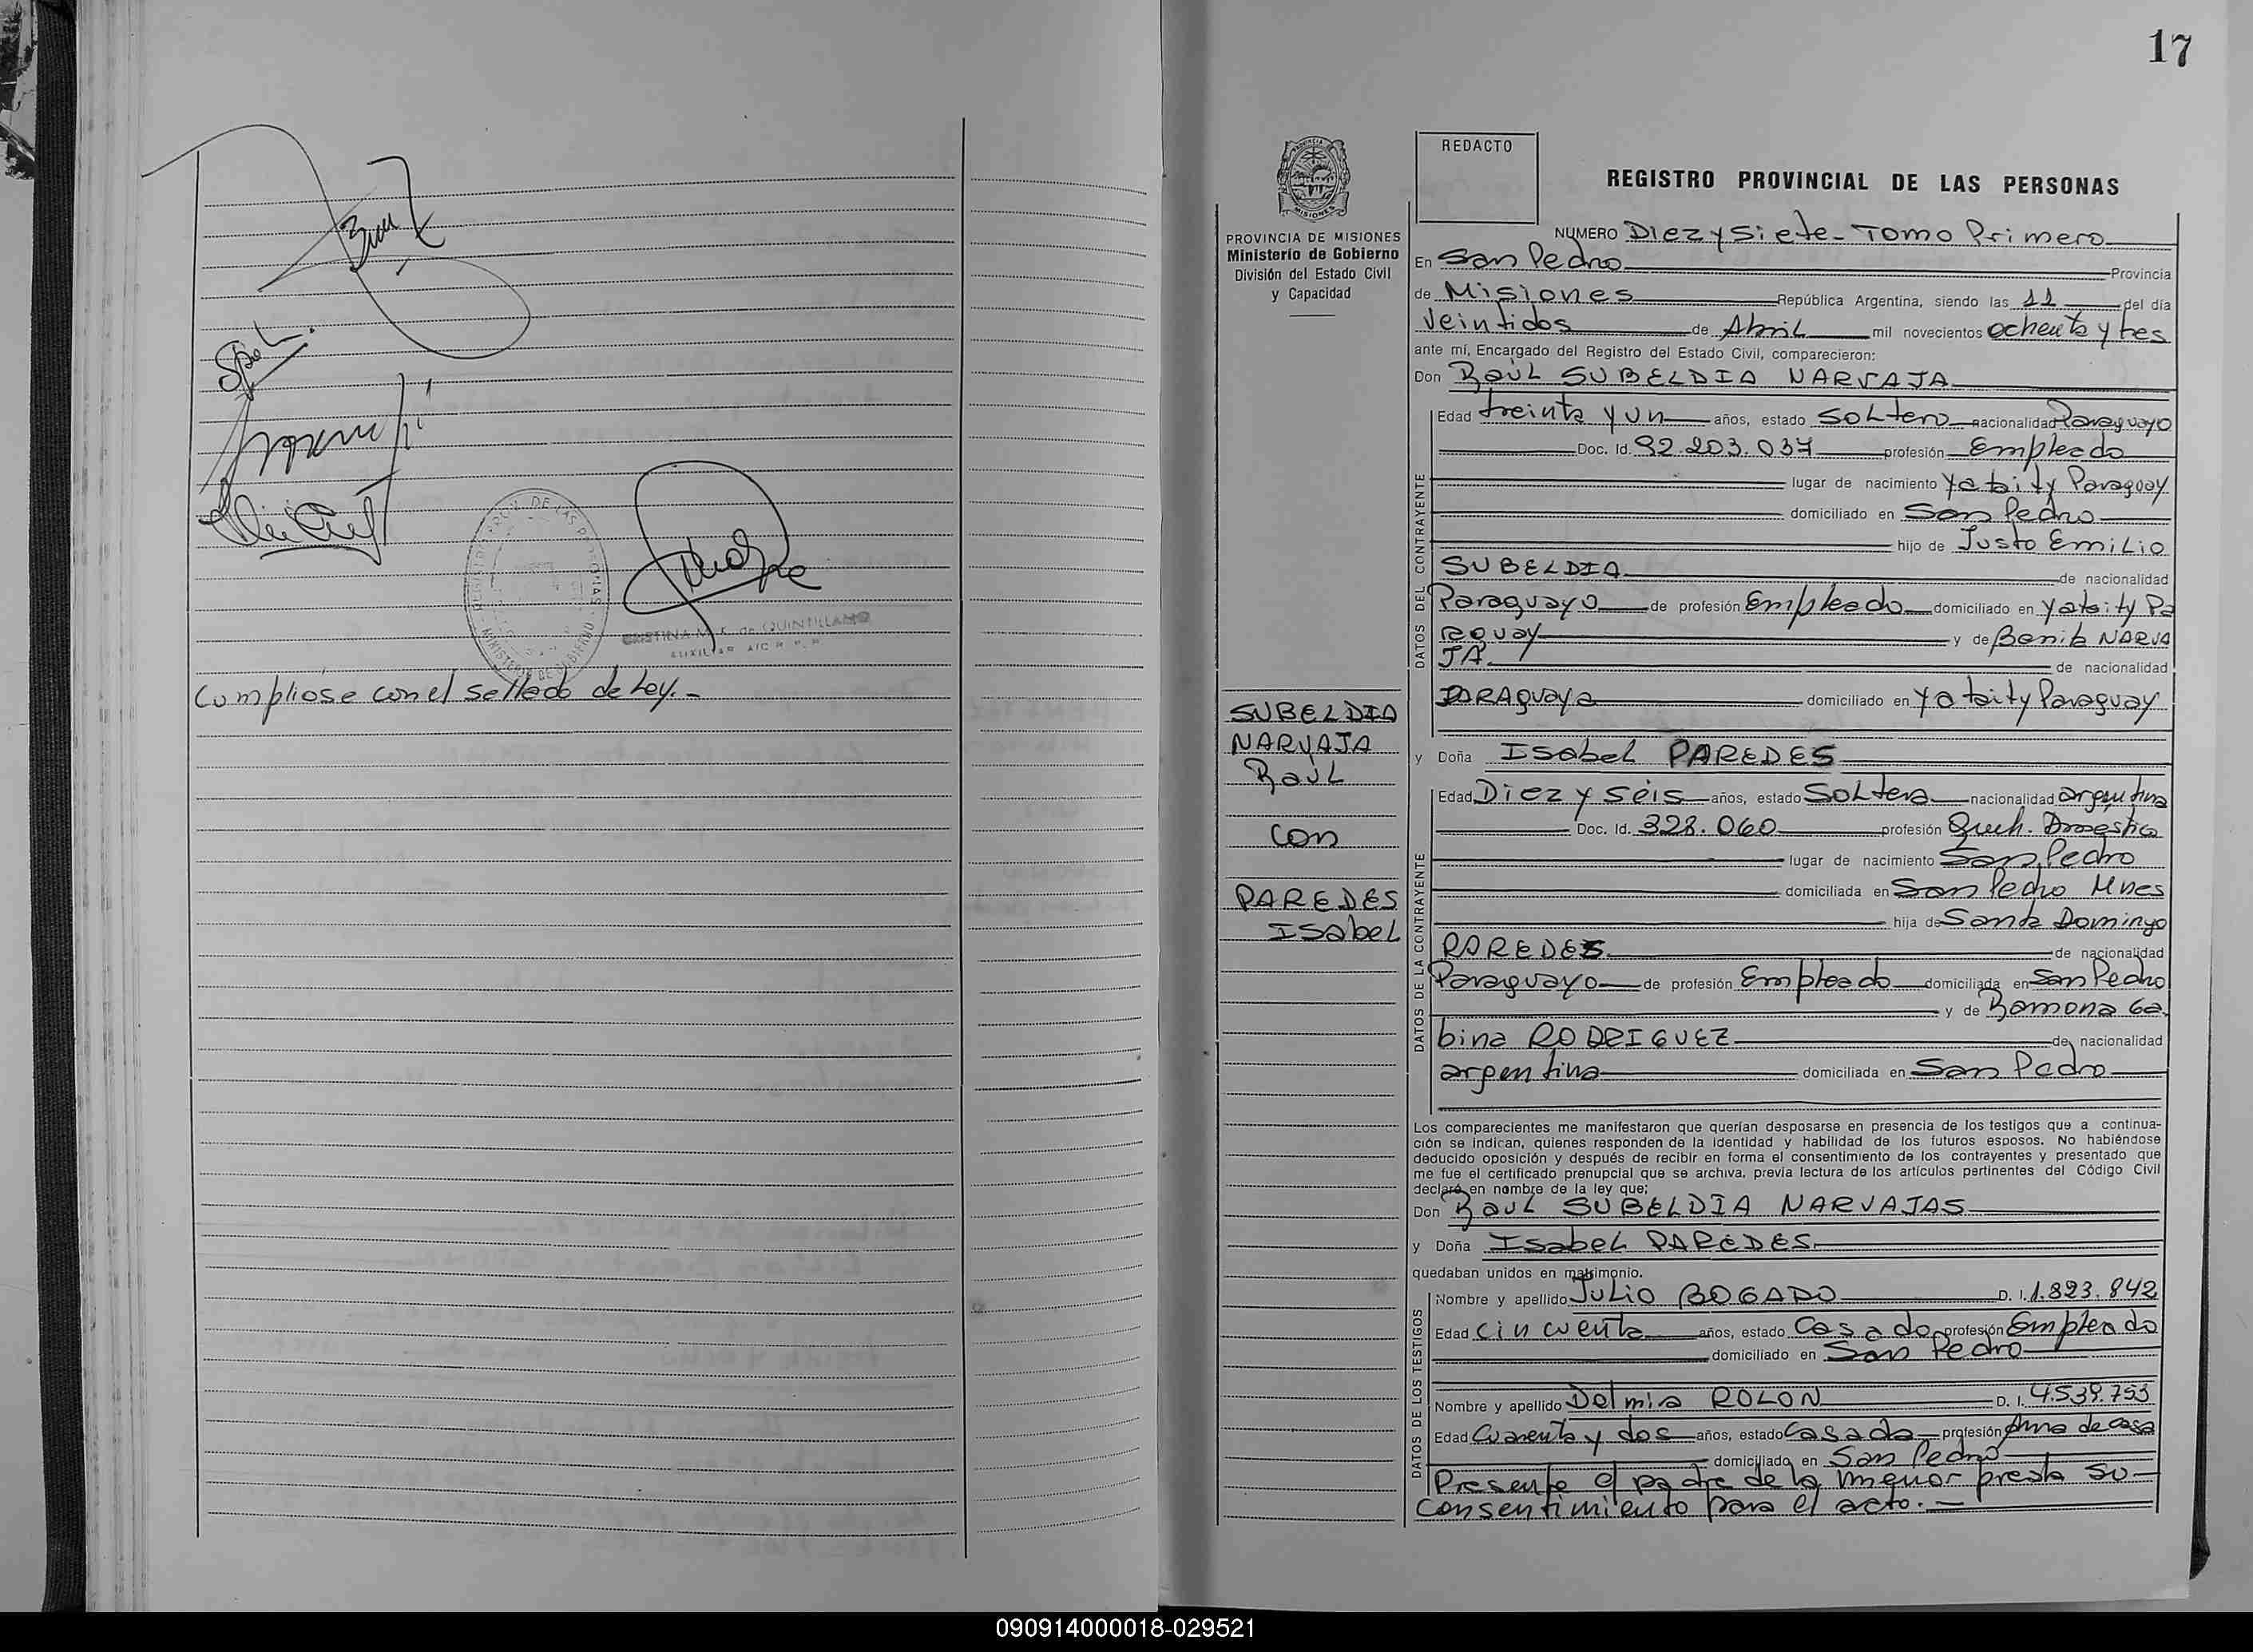 Cumpliose con el sellado de Ley.-
CRISTINA M. K. de QUINTILLANO
17
REDACTO
REGISTRO PROVINCIAL DE LAS PERSONAS
PROVINCIA DE MISIONES
Ministerio de Gobierno
División del Estado Civil
y Capacidad
SUBELDIA
NARVAJA
Raúl
con
PAREDES
Isabel
NUMERO Diez y Siete - Tomo Primero
En San Pedro Provincia
de Misiones República Argentina, siendo las 11 del día
Veintidos de Abril mil novecientos ochenta y tres
ante mí, Encargado del Registro del Estado Civil, comparecieron:
Don Raúl SUBELDIA NARVAJA
DATOS DEL CONTRAYENTE
Edad treinta y un años, estado Soltero nacionalidad Paraguayo
Doc. Id. 92.203.037 profesión Empleado
lugar de nacimiento Yataity Paraguay
domiciliado en San Pedro
hijo de Justo Emilio
SUBELDIA de nacionalidad
Paraguayo de profesión Empleado domiciliado en Yataity Pa
raguay y de Benita NARVA
JA de nacionalidad
PARAguaya domiciliado en Yataity Paraguay
y Doña Isabel PAREDES
DATOS DE LA CONTRAYENTE
Edad Diez y seis años, estado Soltera nacionalidad argentina
Doc. Id. 328.060 profesión Queh. Domestica
lugar de nacimiento San Pedro
domiciliada en San Pedro Mnes
hija de Santa Domingo
PAREDES de nacionalidad
Paraguayo de profesión Empleado domiciliada en San Pedro
y de Ramona Ga
bina RODRIGUEZ de nacionalidad
argentina domiciliada en San Pedro
Los comparecientes me manifestaron que querían desposarse en presencia de los testigos que a continua-
ción se indican, quienes responden de la identidad y habilidad de los futuros esposos. No habiéndose
deducido oposición y después de recibir en forma el consentimiento de los contrayentes y presentado que
me fue el certificado prenupcial que se archiva, previa lectura de los artículos pertinentes del Código Civil
declaré en nombre de la ley que;
Don Raul SUBELDIA NARVAJAS
y Doña Isabel PAREDES
quedaban unidos en matrimonio.
DATOS DE LOS TESTIGOS
Nombre y apellido Julio BOGADO D. I. 1.823.842
Edad cincuenta años, estado Casado profesión Empleado
domiciliado en San Pedro
Nombre y apellido Delmia ROLON D. I. 4.539.753
Edad Cuarenta y dos años, estado Casada profesión Ama de casa
domiciliado en San Pedro
Presente el padre de la menor presta su
consentimiento para el acto.-
090914000018-029521